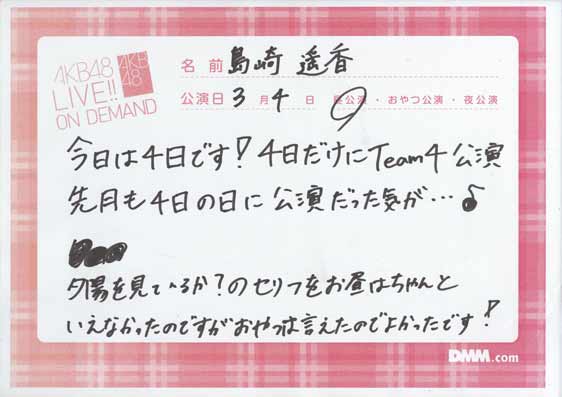 AKB48
LIVE!!
ON DEMAND
AKB
48
名前 島崎 遥香
公演日 3 月 4 日 昼公演 ・ おやつ公演 ・ 夜公演
今日は4日です!4日だけにTeam4公演
先月も4日の日に公演だった気が…♪
夕陽を見ているか?のセリフをお昼はちゃんと
いえなかったのですがおやつは言えたのでよかったです!
DMM.com